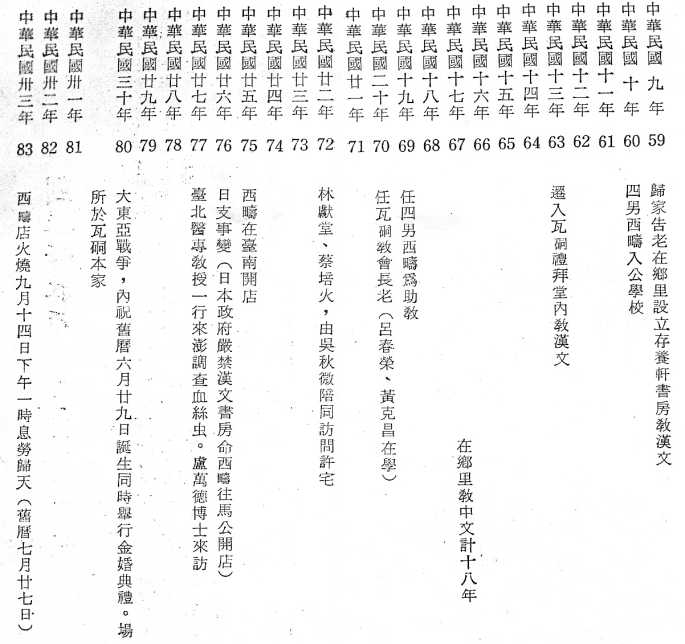 中華民國九年 59 歸家告老在鄉里設立存養軒書房教漢文
中華民國十年 60 四男西疇入公學校
中華民國十一年 61
中華民國十二年 62
中華民國十三年 63 遷入瓦硐禮拜堂內教漢文
中華民國十四年 64
中華民國十五年 65
中華民國十六年 66
中華民國十七年 67 在鄉里教中文計十八年
中華民國十八年 68
中華民國十九年 69 任四男西疇爲助教
中華民國二十年 70 任瓦硐教會長老（呂春榮、黃克昌在學）
中華民國廿一年 71
中華民國廿二年 72 林獻堂、蔡培火，由吳秋微陪同訪問許宅
中華民國廿三年 73
中華民國廿四年 74
中華民國廿五年 75 西疇在臺南開店
中華民國廿六年 76 日支事變（日本政府嚴禁漢文書房命西疇往馬公開店）
中華民國廿七年 77 臺北醫專教授一行來澎調查血絲虫。盧萬德博士來訪
中華民國廿八年 78
中華民國廿九年 79
中華民國三十年 80 大東亞戰爭，內祝舊曆六月廿九日誕生同時舉行金婚典禮。場
所於瓦硐本家
中華民國卅一年 81
中華民國卅二年 82
中華民國卅三年 83 西疇店火燒九月十四日下午一時息勞歸天（舊曆七月廿七日）